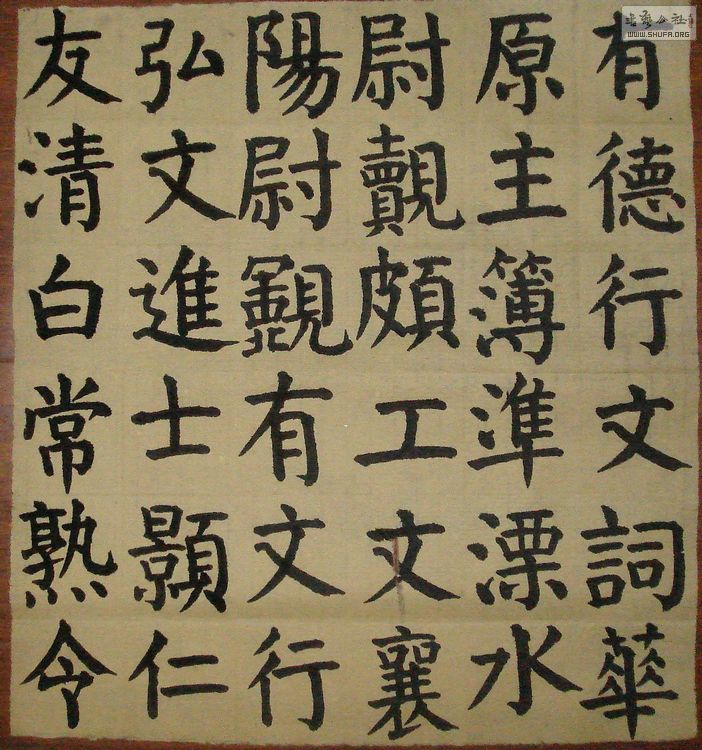 有德行文詞華
原主簿準溧水
尉覿頗工文襄
陽尉有文行
弘文進士顥仁
友清白常熟令
書法公社
WWW.SHUFA.ORG